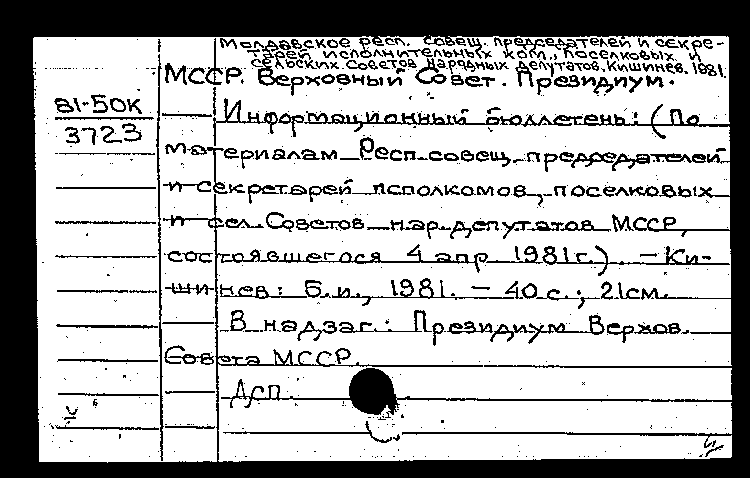 Молдавское респ. совещ. председателей и секре-
тарей исполнительных ком., поселковых и
сельских Советов народных депутатов. Кишинев. 1981.
МССР. Верховный Совет. Президиум.
81-50К
3723
Информационный бюллетень: (По
материалам Респ. совещ. председателей
и секретарей исполкомов, поселковых
и сел. Советов нар. депутатов МССР,
состоявшегося 4 апр 1981г.). – Ки-
шинев: Б.и., 1981. – 40 с.; 21см.
В надзаг.: Президиум Верхов.
Совета МССР.
Дсп.